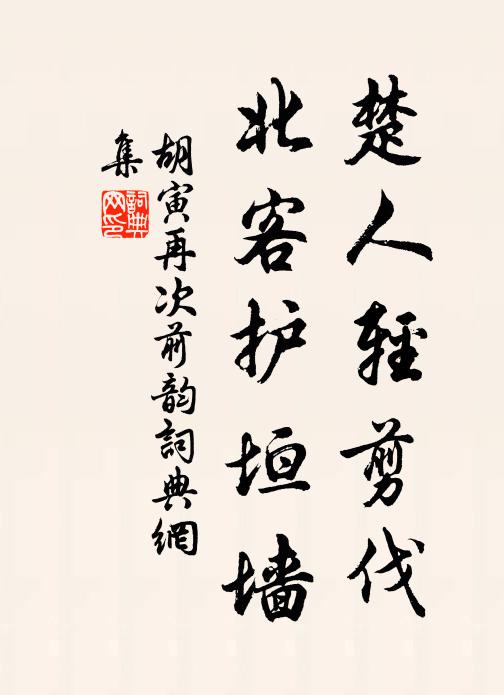 楚人輕剪伐
北客护垣墙
胡寅再次前韵詞典網
集
詞典网印